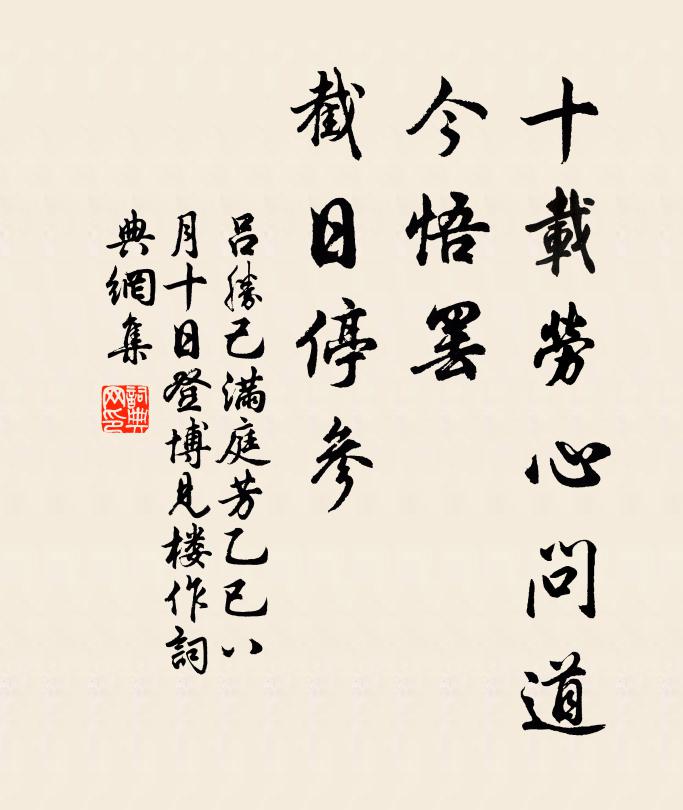 十載勞心問道
今悟罷
截日停參
呂勝己滿庭芳乙巳八
月十日登博見楼作詞
典網集
詞典網印